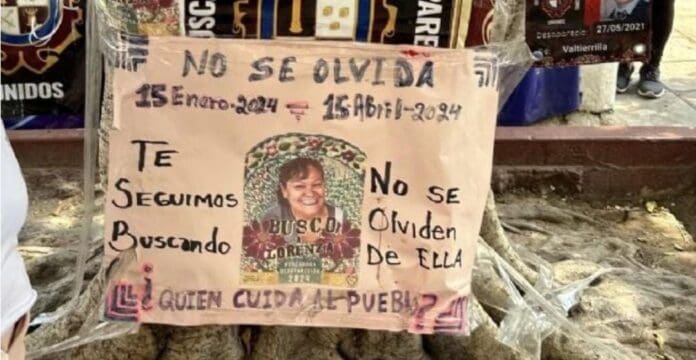 UNIDOS
BUSCO
PAREC
Desaparecio
27/05/2021
Valtierrilla
NO SE OLVIDA
15 Enero-2024 15 Abril-2024
TE
SEGUIMOS
Buscando
BUSCO
A
LORENZA
BUSCADORA
DESAPARECIDA
2024
No SE
Olviden
De ELLA
¿QUIEN CUIDA AL PUEBLO?